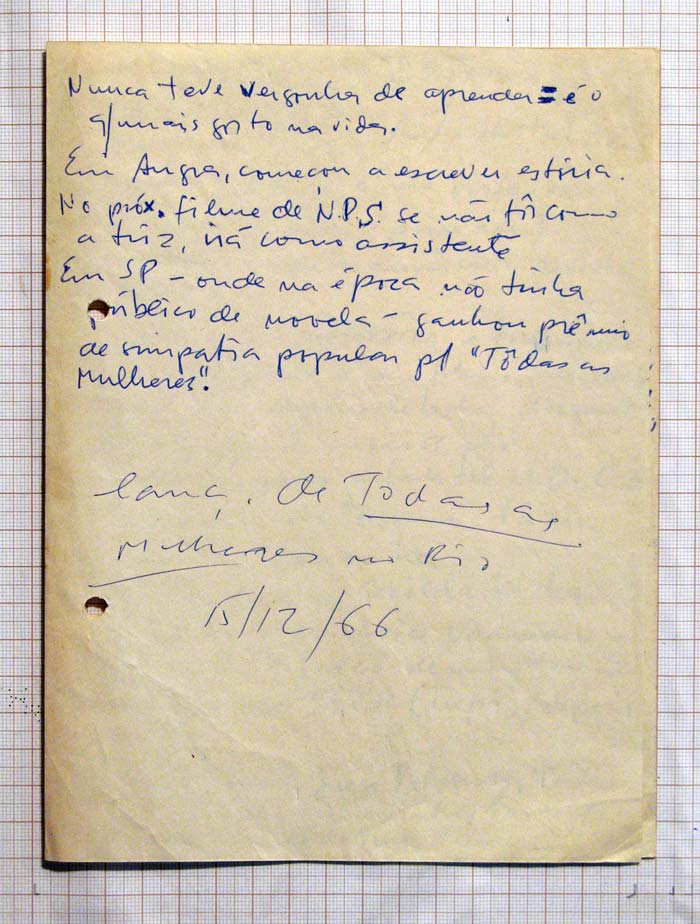 Nunca teve vergonha de aprender = é o
q/ mais gosto na vida.
Em Angra, começou a escrever estória.
No próx. filme de N.P.S. se não fôr como
atriz, irá como assistente
Em SP - onde na época não tinha
público de novela - ganhou prêmio
de simpatia popular p/ "Tôdas as
Mulheres".
lanç. de Todas as
Mulheres no Rio
15/12/66